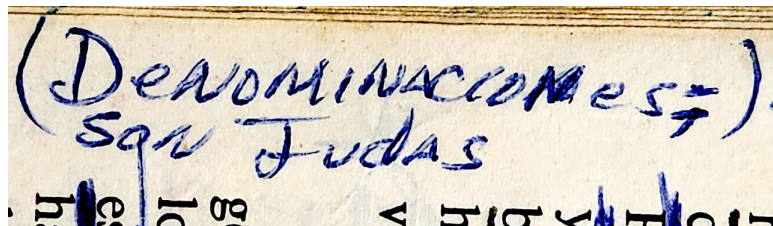 (DeNOMiNACCiONes;).
SaN JudAs